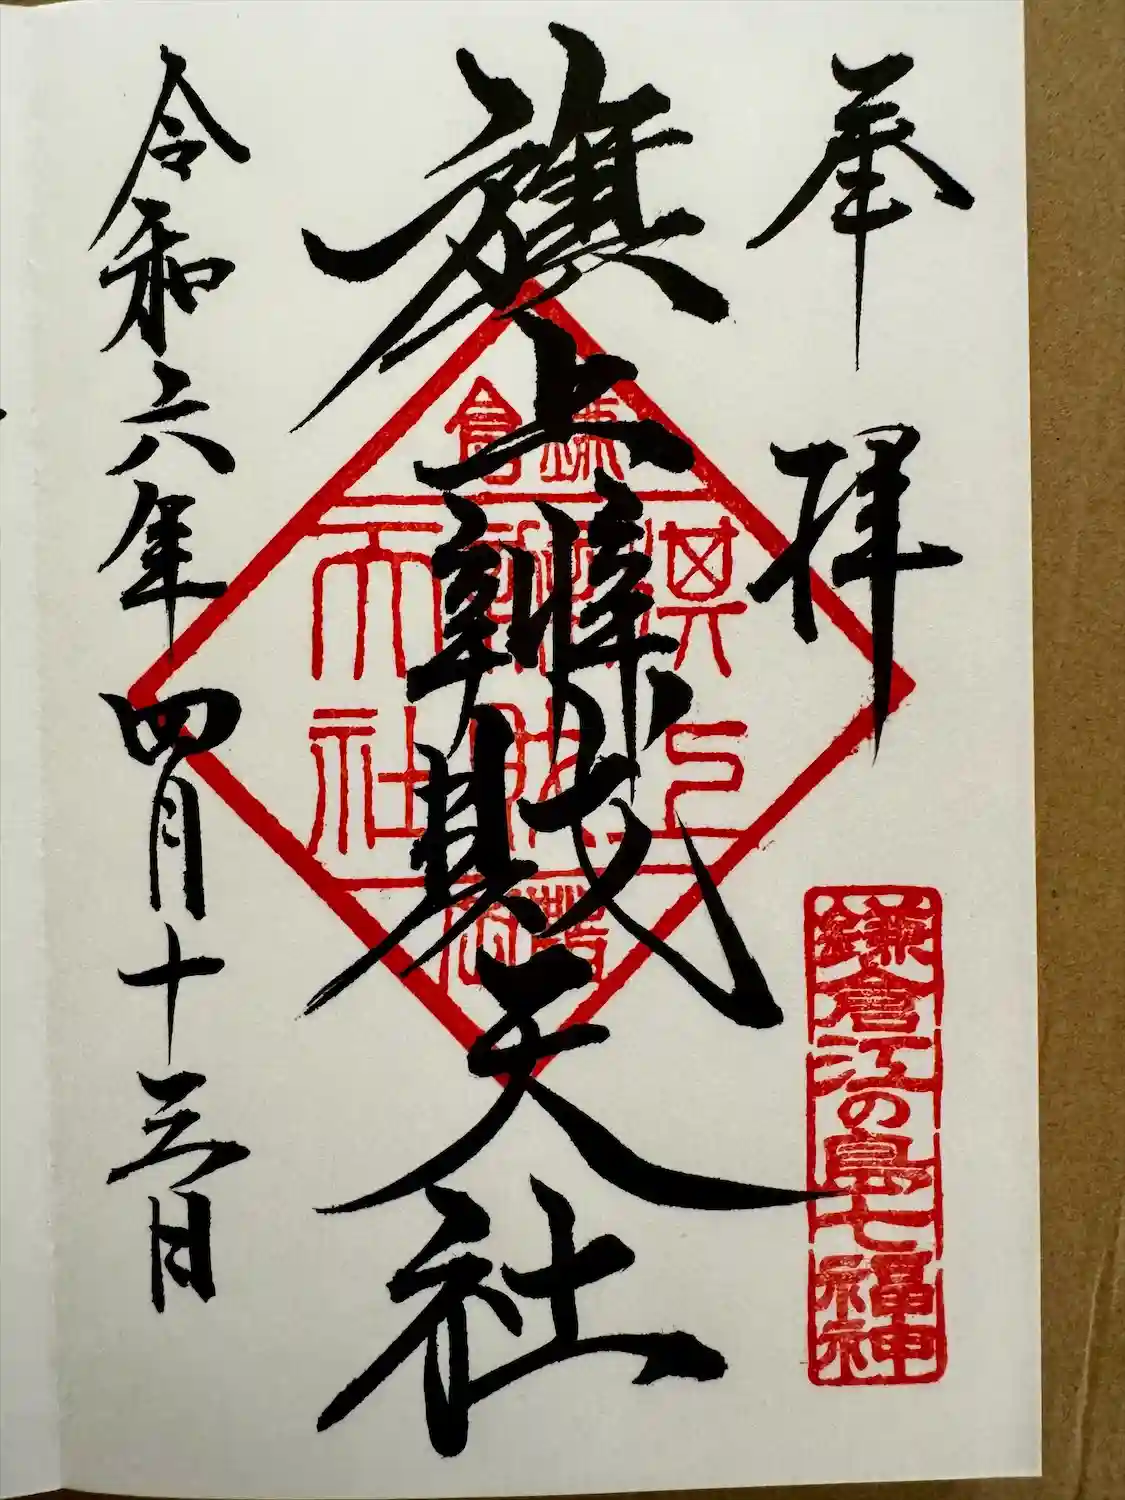 奉拝
鎌倉江の島七福神
旗上辨財天社
鎌倉
旗上
辨財
天社
令和六年四月十三日